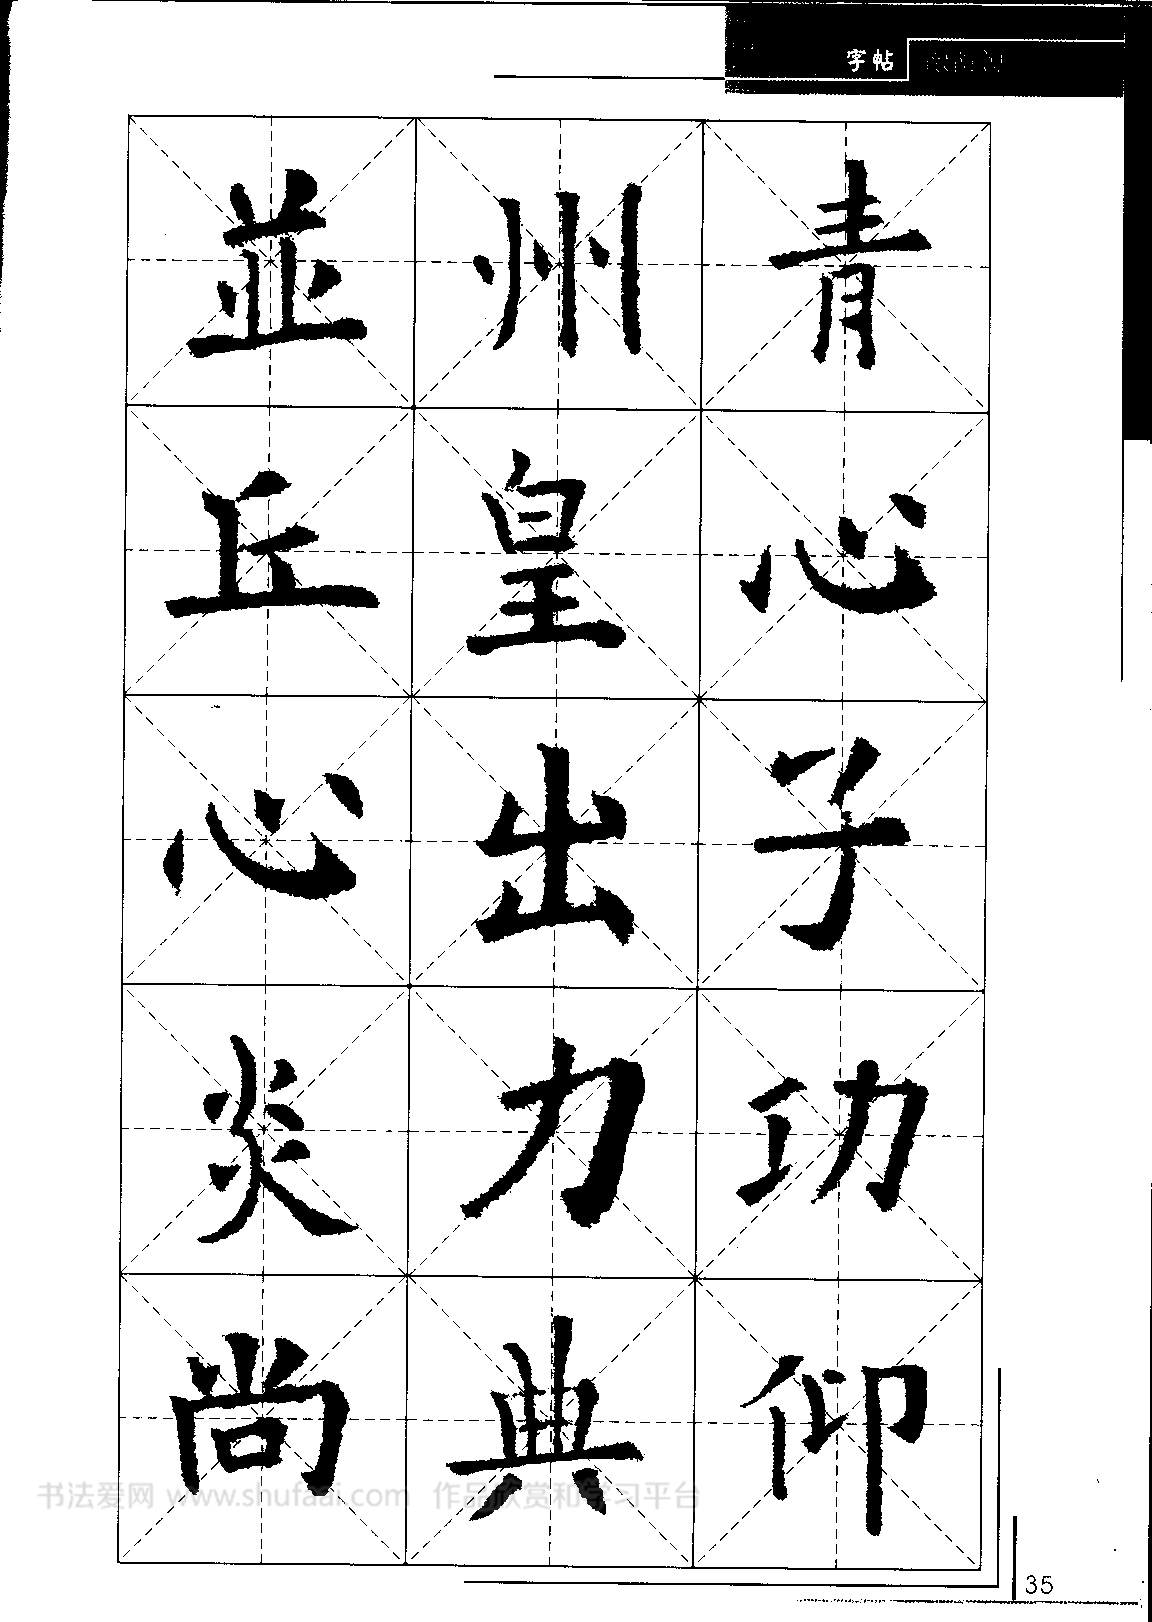 字帖
並州青
丘皇心
心出子
炎力功
尚典仰
书法爱网 www.shufaai.com 作品欣赏和学习平台
35